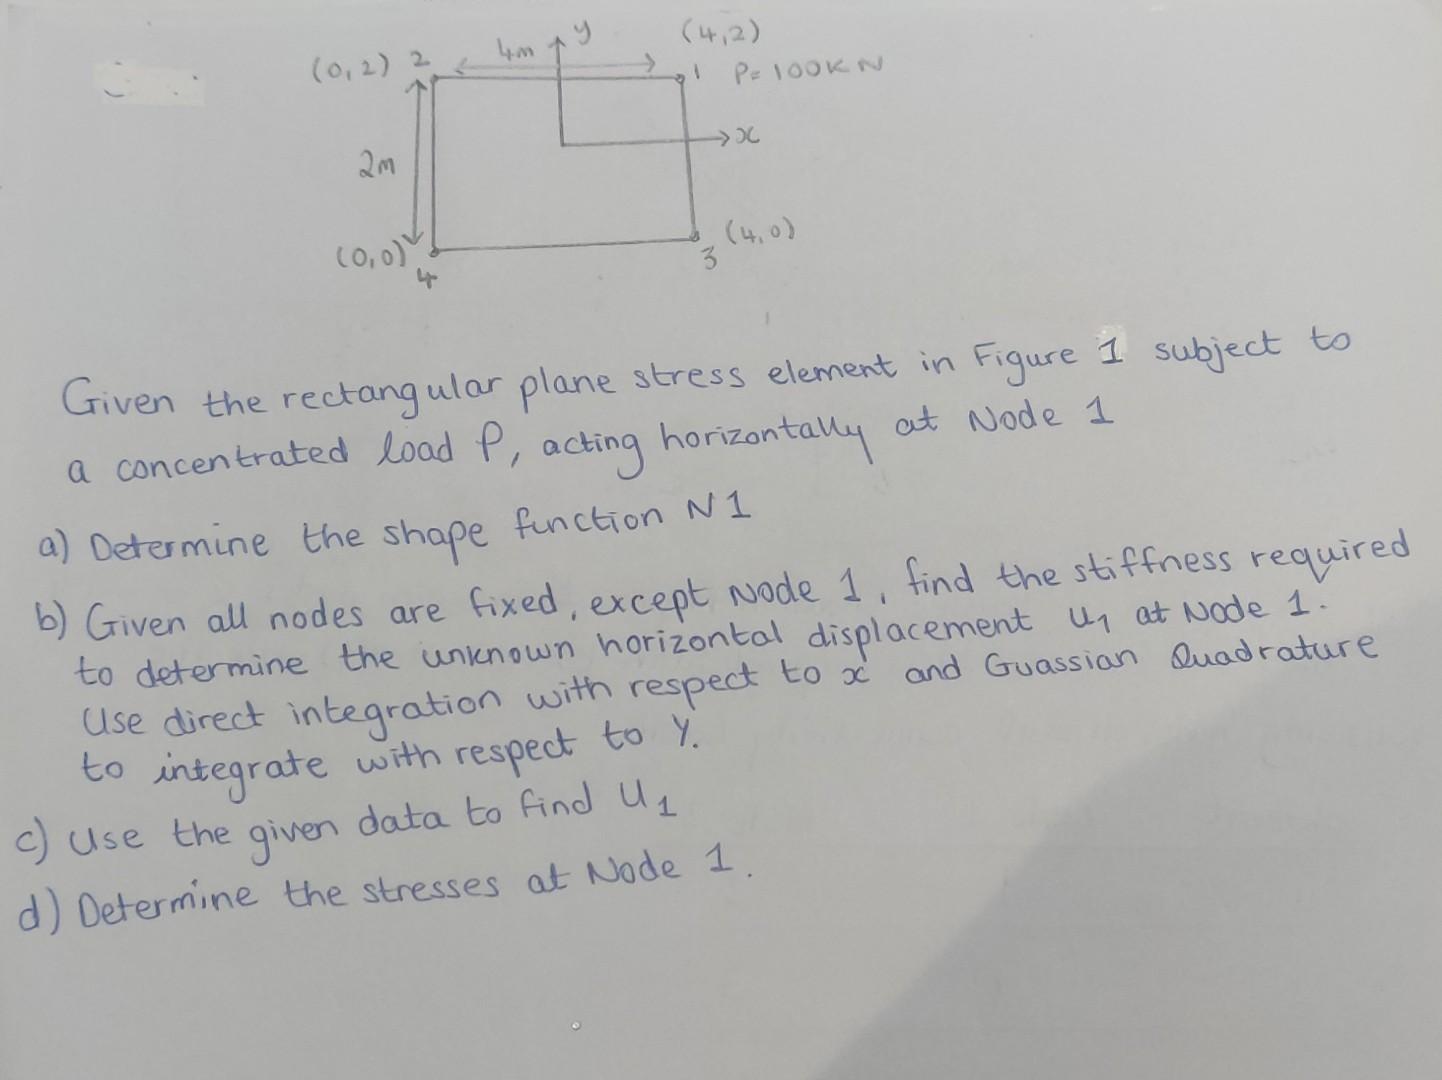 (0,2) 2 4m y (4,2)
1 P= 100KN
x
2m
(0,0) 4 3 (4,0)
Given the rectangular plane stress element in Figure 1 subject to
a concentrated load P, acting horizontally at Node 1
a) Determine the shape function N1
b) Given all nodes are fixed, except Node 1, find the stiffness required
to determine the unknown horizontal displacement u1 at Node 1.
Use direct integration with respect to x and Guassian Quadrature
to integrate with respect to Y.
c) Use the given data to find U1
d) Determine the stresses at Node 1.